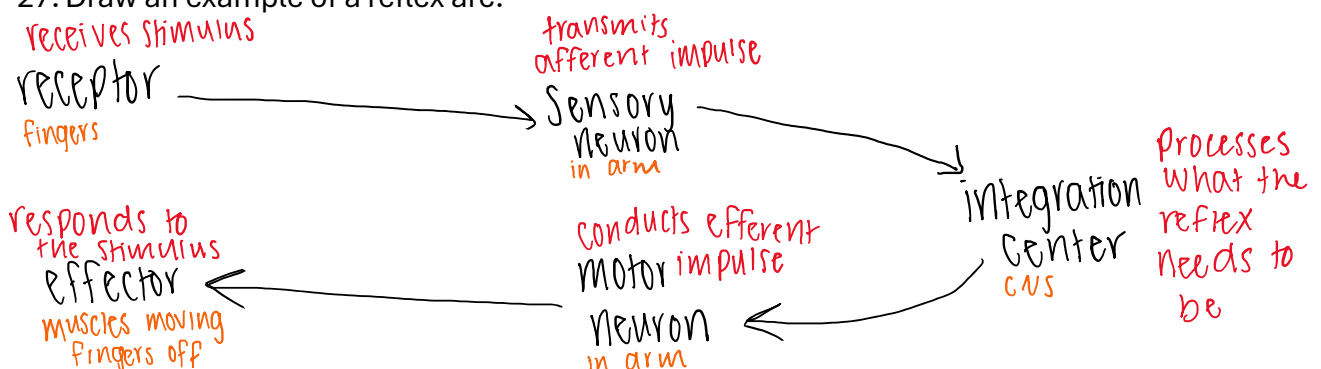 27. Draw an example of a reflex arc.
receives stimulus
receptor
fingers
transmits
afferent impulse
Sensory
neuron
in arm
integration
center
CNS
Processes
what the
reflex
needs to
be
conducts efferent
motor impulse
neuron
in arm
responds to
the stimulus
effector
muscles moving
fingers off